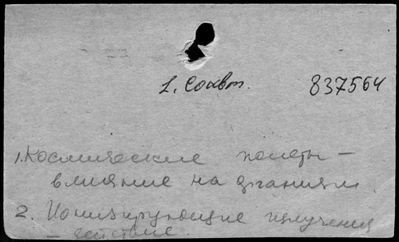 1. Соавт. 837564
1. Космические полеты –
влияние на организм.
2. Ионизирующие излучения
– действие.